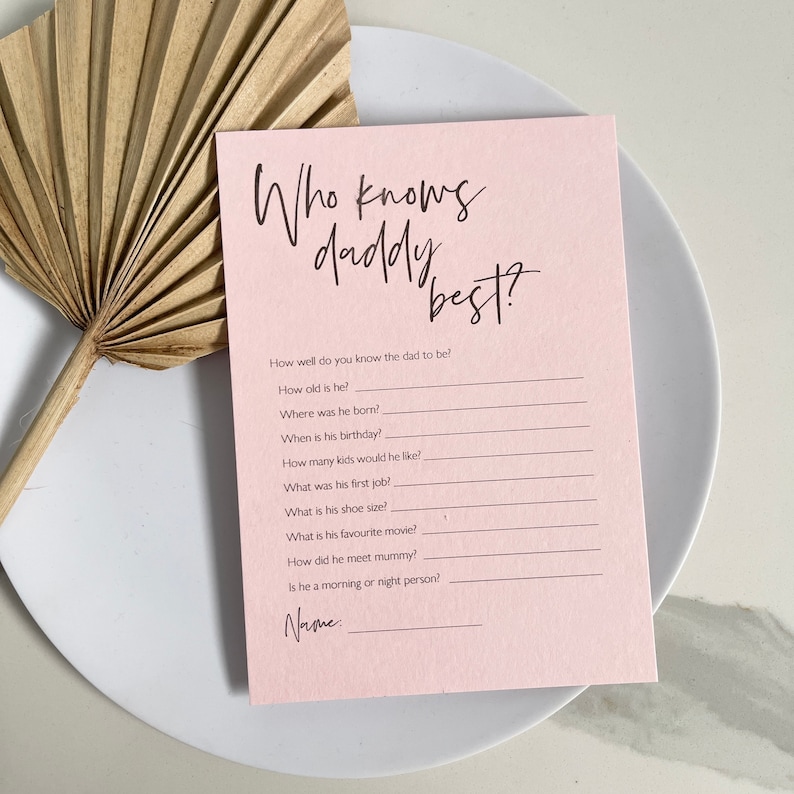 Who knows
daddy
best?
How well do you know the dad to be?
How old is he?
Where was he born?
When is his birthday?
How many kids would he like?
What was his first job?
What is his shoe size?
What is his favourite movie?
How did he meet mummy?
Is he a morning or night person?
Name: